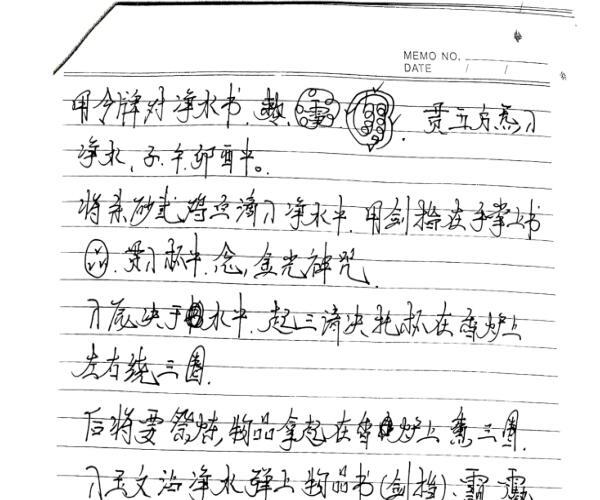 MEMO NO.
DATE / /
用令牌对净水书、 贯五方炁入
净水、子、午、卯酉中。
将朱砂 鸡 滴入净水中、用剑指在手掌上书
贯入杯中、念、金光神咒
入 决于水中、起三清决托杯在香炉上
左右绕三圈.
后将要祭炼、物品拿起在香炉上熏三圈.
入 文沾净水弹上物品书(剑指)